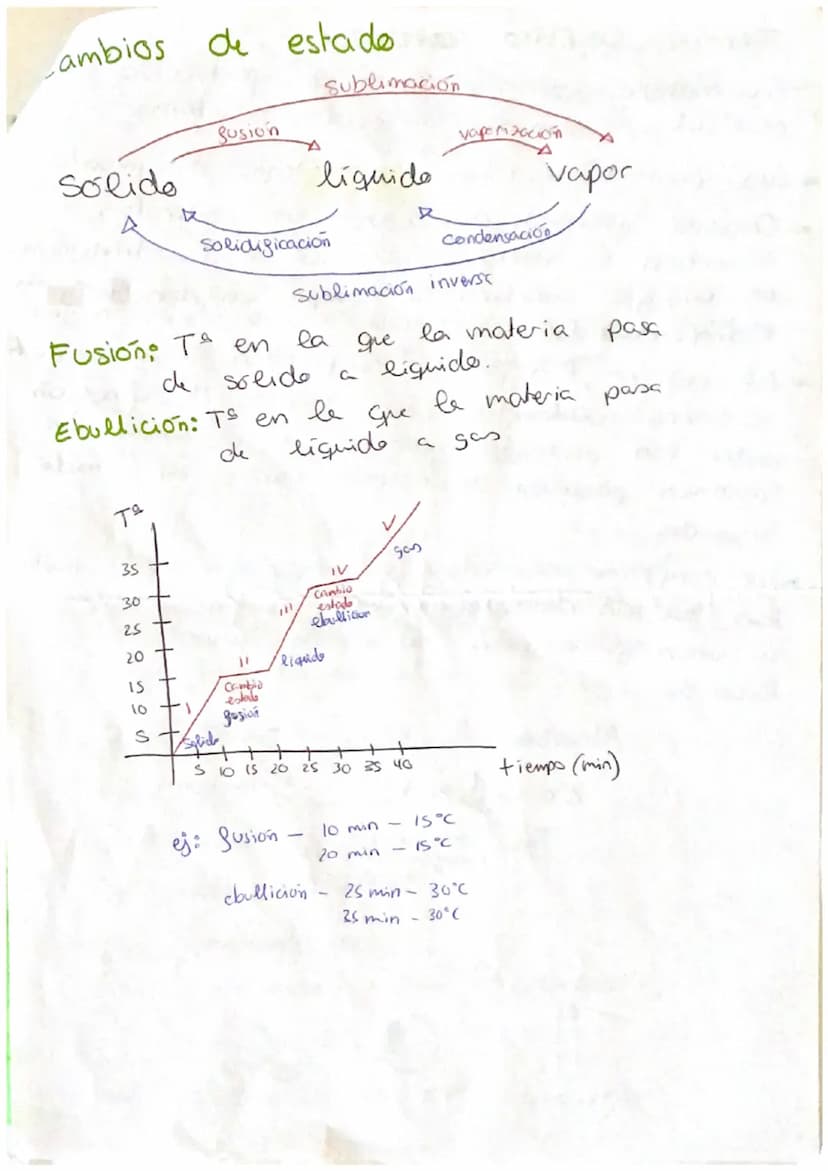 Cambios de estado
sublimación
fusión
vaporización
sólido líquido vapor
solidificación
condensación
sublimación inversa
Fusión: Tª en la que la materia pasa
de sólido a líquido.
Ebullición: Tª en la que la materia pasa
de líquido a gas
Tª
35
30
25
20
15
10
5
I
sólido
II
cambio
estado
fusión
III
líquido
IV
cambio
estado
ebullición
V
gas
5 10 15 20 25 30 35 40
tiempo (min)
ej: fusión – 10 min – 15°C
20 min – 15°C
ebullición – 25 min – 30°C
35 min - 30°C